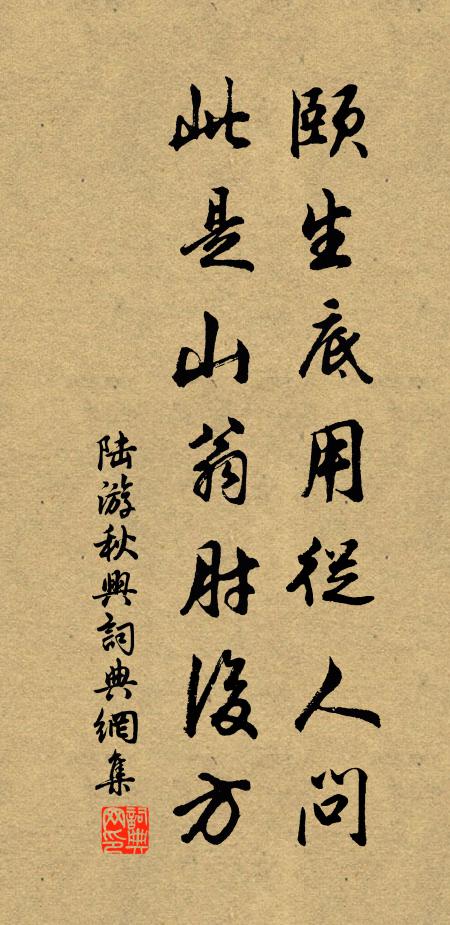 頤生底用從人問
此是山翁肘後方
陸游秋興詞典網集
詞典網印